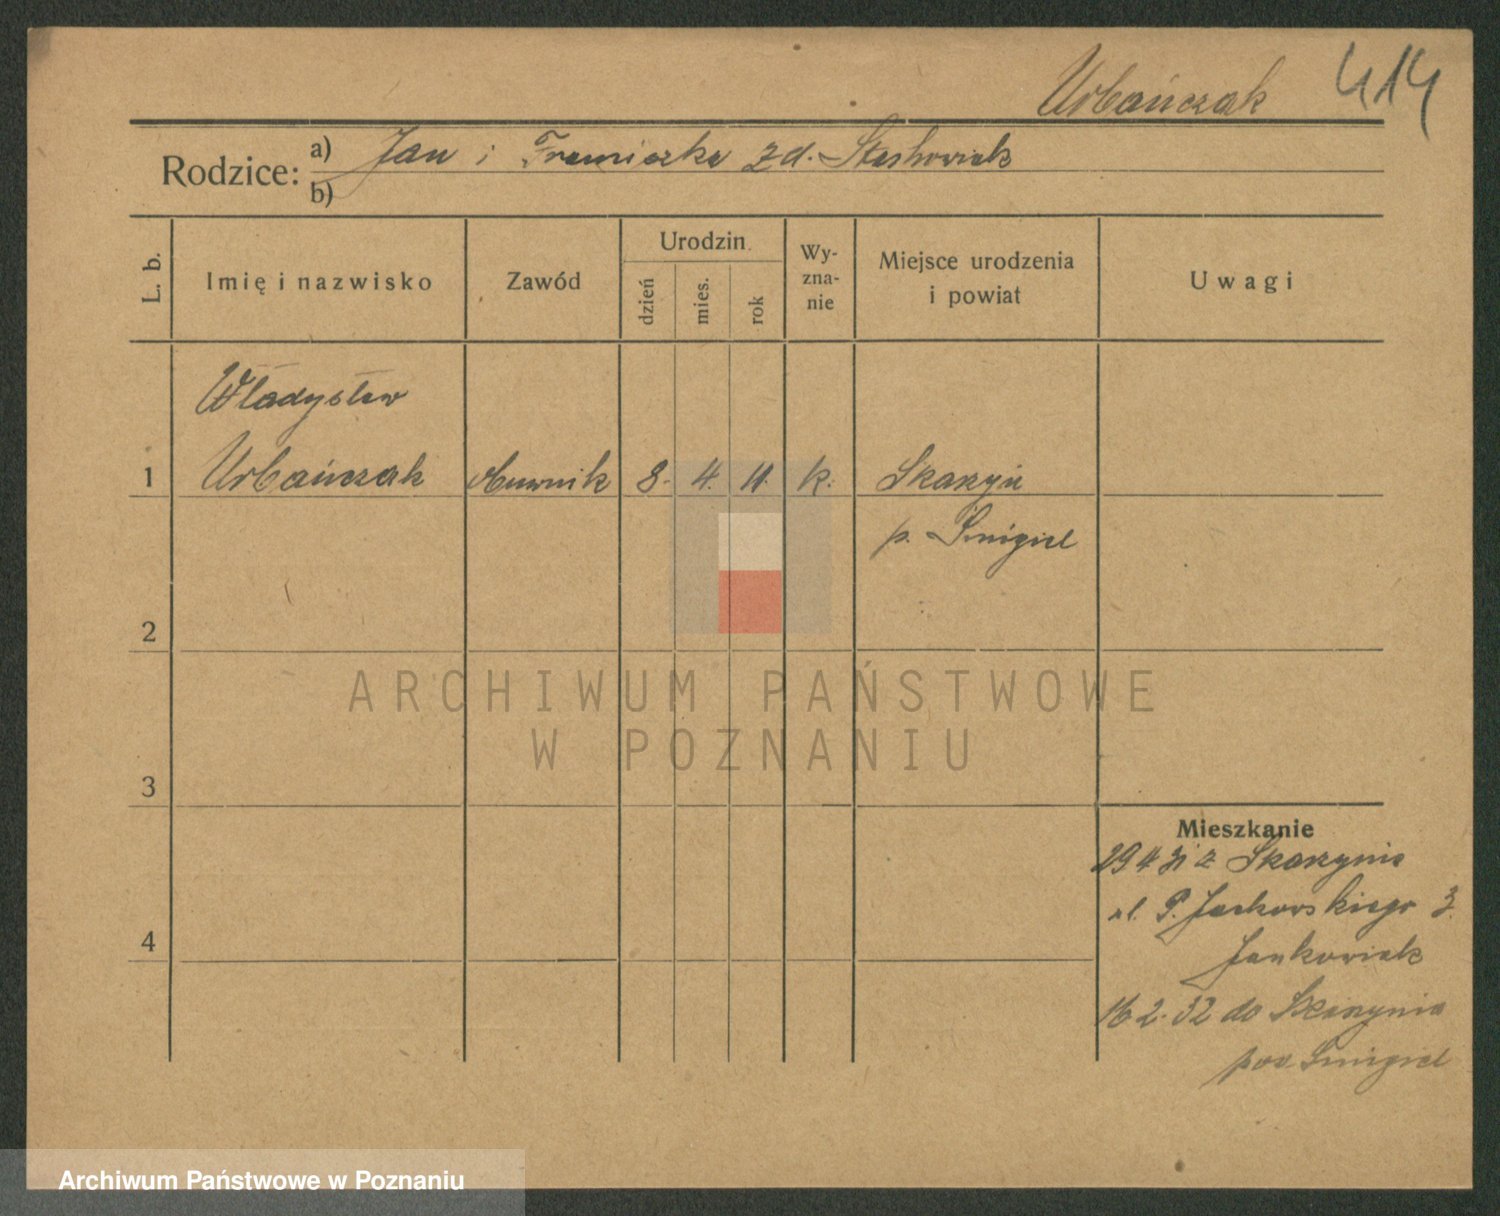 Urbańczak 414
Rodzice: a) Jan i Franciszka z d. Stachowiak
b)
L. b.
Imię i nazwisko
Zawód
Urodzin.
dzień
mies.
rok
Wy-
zna-
nie
Miejsce urodzenia
i powiat
Uwagi
Władysław
1 Urbańczak obuwnik 8. 4. 11. k. Skarzyń
p. Śmigiel
2
3
4
Mieszkanie
29 4 31 z Skarzynia
ul. P. Jackowskiego 3.
Jankowiak
16 2. 32 do Skarzynia
pow. Śmigiel
ARCHIWUM PAŃSTWOWE
W POZNANIU
Archiwum Państwowe w Poznaniu